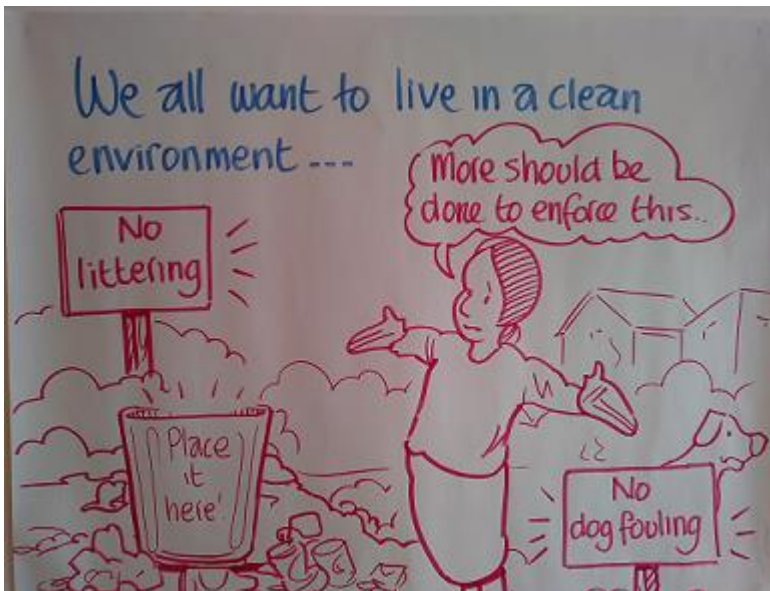 We all want to live in a clean
environment ---
More should be
done to enforce this..
No
littering
Place
it
here!
No
dog fouling